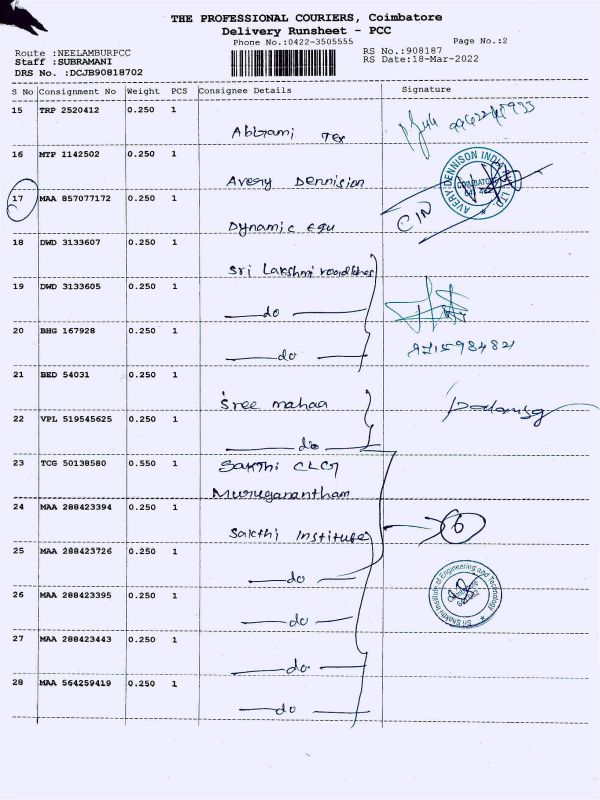 THE PROFESSIONAL COURIERS, Coimbatore
Delivery Runsheet - PCC
Phone No.:0422-3505555 Page No.:2
Route :NEELAMBURPCC RS No.:908187
Staff :SUBRAMANI RS Date:18-Mar-2022
DRS No. :DCJB90818702
S No Consignment No Weight PCS Consignee Details Signature
15 TRP 2520412 0.250 1
Abirami Tex
16 MTP 1142502 0.250 1
Avery Dennision
AVERY DENNISON INDIA
17 MAA 857077172 0.250 1
Dynamic Equ
18 DWD 3133607 0.250 1
Sri Lakshmi roadlines
19 DWD 3133605 0.250 1
do
20 BHG 167928 0.250 1
do
21 BED 54031 0.250 1
Sree mahaa
22 VPL 519545625 0.250 1
do
23 TCG 50138580 0.550 1
Sakthi CLG
Muruganantham
24 MAA 288423394 0.250 1
Sakthi Institute
6
25 MAA 288423726 0.250 1
do
Sri Shakthi Institute of Engineering and Technology
26 MAA 288423395 0.250 1
do
27 MAA 288423443 0.250 1
do
28 MAA 564259419 0.250 1
do